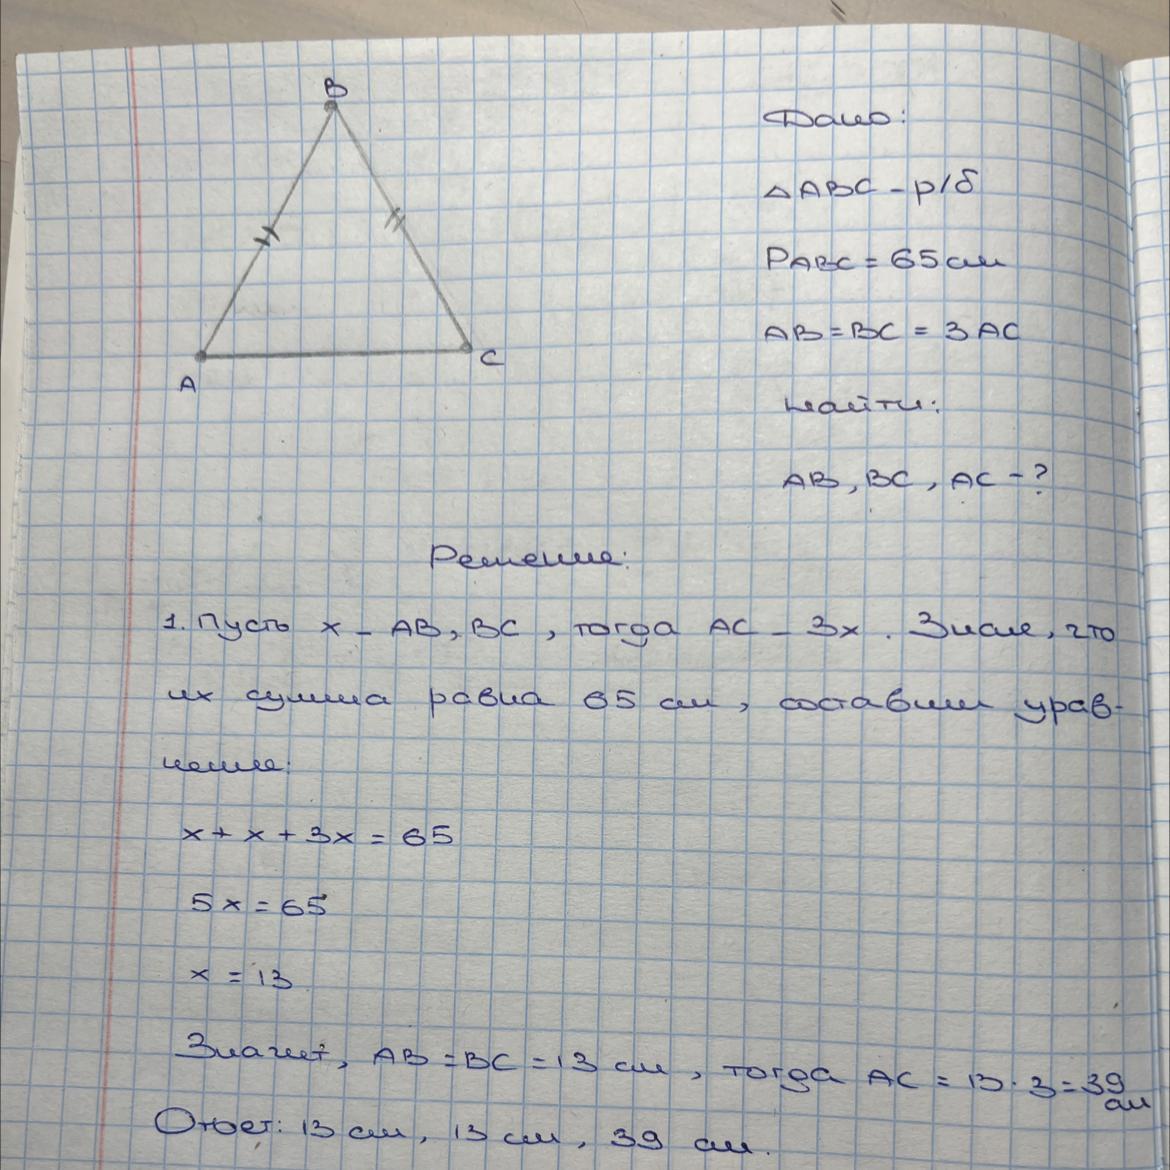 B
A
C
Дано:
△ABC - р/б
PABC = 65 см
AB = BC = 3 AC
Найти:
AB, BC, AC - ?
Решение:
1. Пусть x - AB, BC, тогда AC - 3x. Зная, что
их сумма равна 65 см, составим урав-
нение:
x + x + 3x = 65
5x = 65
x = 13
Значит, AB = BC = 13 см, тогда AC = 13 · 3 = 39
см
Ответ: 13 см, 13 см, 39 см.